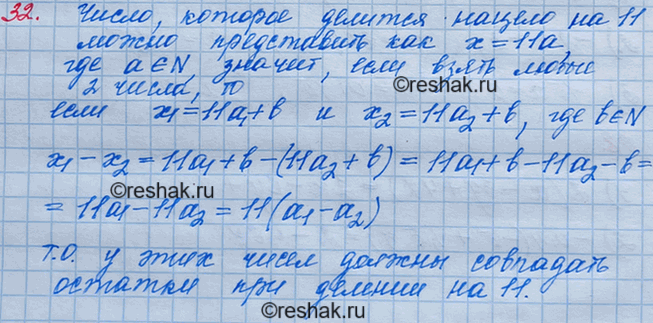 32. Число, которое делится нацело на 11
можно представить как x=11a,
где a∈N, значит, если взять любые
2 числа, то
если x₁=11a₁+в и x₂=11a₂+в, где в∈N
x₁-x₂=11a₁+в-(11a₂+в)=11a₁+в-11a₂-в=
©reshak.ru
=11a₁-11a₂=11(a₁-a₂)
т.о. у этих чисел должны совпадать
остатки при делении на 11.
©reshak.ru